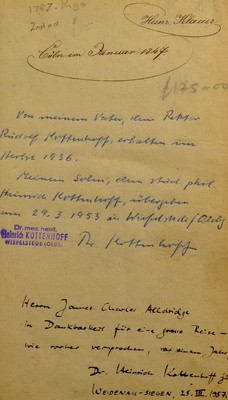 Heinz Klauer
Cöln im Januar 1847
£175-00
Von meinem Vater, dem Rektor
Rudolf Kottenhoff, erhalten im
Herbst 1936.
Meinem Sohn, dem stud. phil.
Heinrich Kottenhoff, übergeben
am 29.3.1953 in Wiefelstede/Oldbg
Dr. Kottenhoff
Dr. med. habil.
Heinrich KOTTENHOFF
WIEFELSTEDE (OLDB)
Herrn James Charles Alldridge
in Dankbarkeit für eine grosse Reise -
wie vorher versprochen, vor einem Jahr,
Dr. Heinrich Kottenhoff jr
WEIDENAU-SIEGEN, 25. III. 1957.